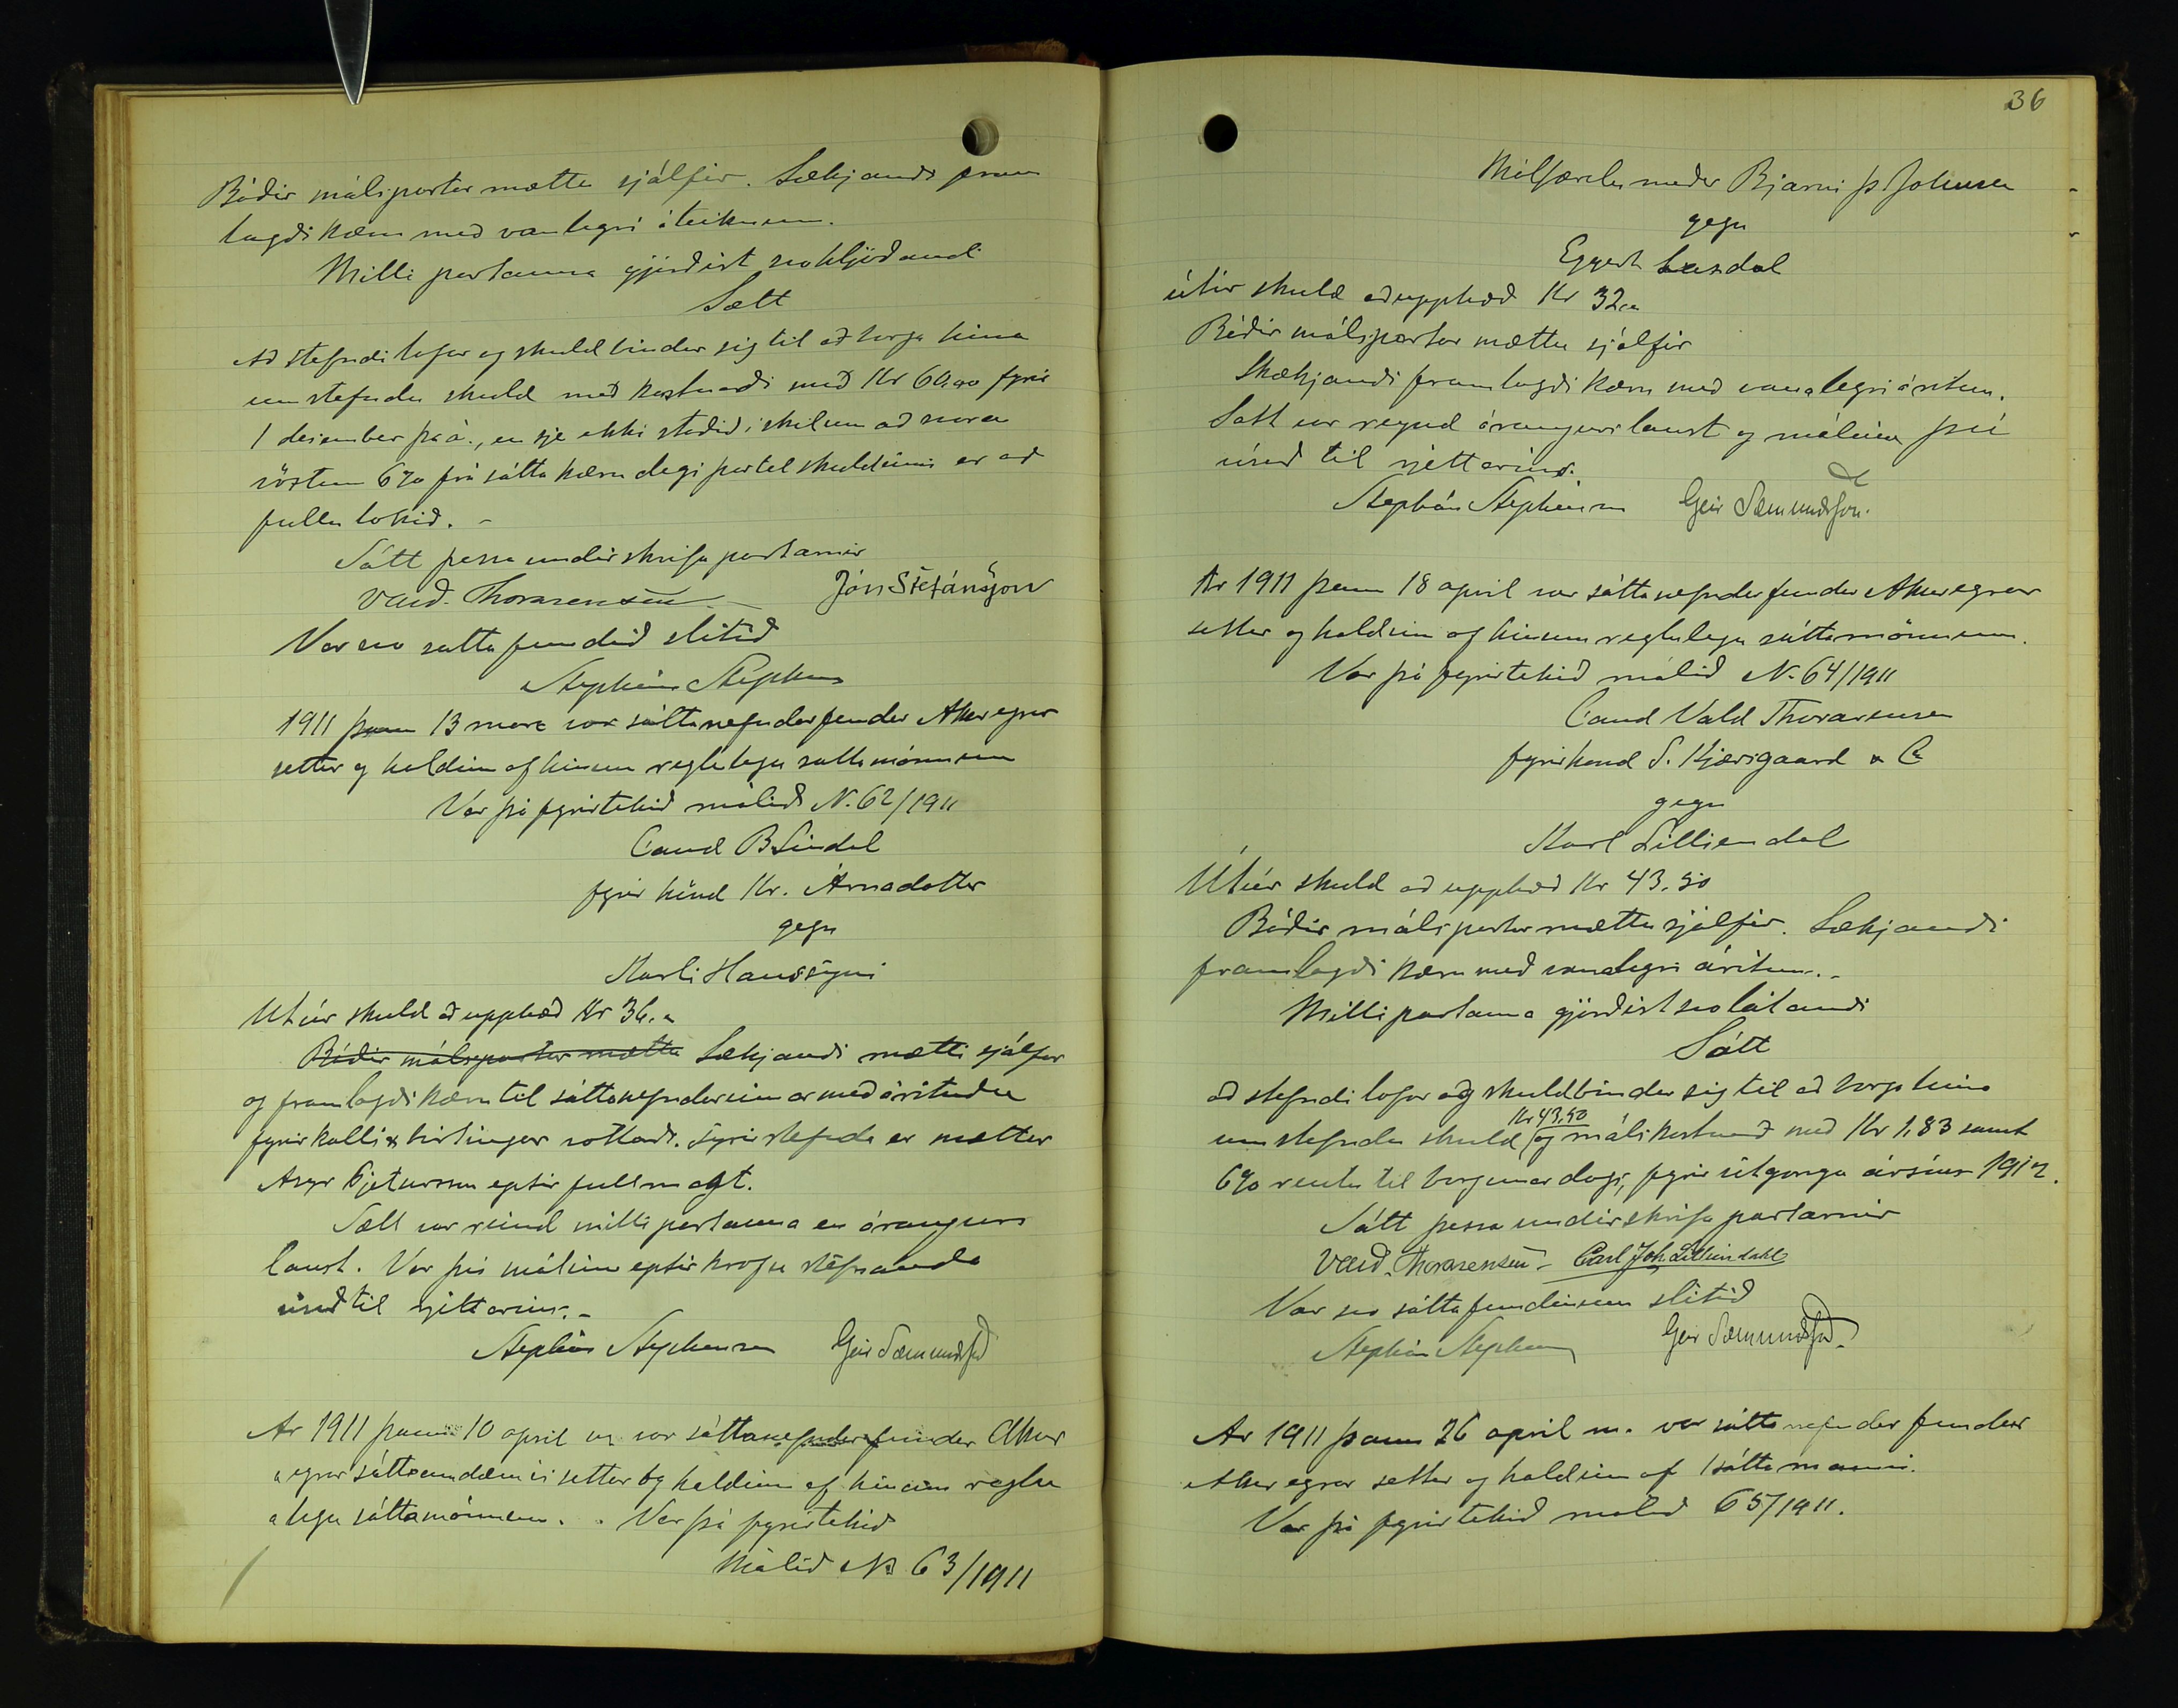 Báðir málspartar mættu sjálfir. Sækjandi fram
lagði kæru með vanlegri áteiknun.
Milli partanna gjörðist svohljóðandi
Sætt
Að stefndi lofar og skuldbindur sig til að borga hina
umstefndu skuld með kostnaði með Kr 60,90 fyrir
1 desember þ.á., en sje ekki staðið í skilum að svara
vöxtum 6% frá sáttakæru degi þartil skuldinni er að
fullu lokið. -
Sátt þessa undirskrifa partarnir
Vald. Thorarensen Jón Stefánsson
Var svo sáttafundið slitið
Stephán Stephensen
1911 þann 13 marz var sáttanefndarfundur Akureyrar
settur og haldinn af hinum reglulegu sáttamönnum
Var þá fyrirtekið málið N. 62/1911
Cand B Líndal
fyrir hönd Kr. Árnadóttur
gegn
Karli Hanssyni
Útúr skuld að upphæð Kr 36.„
Báðir málspartar mættu Sækjandi mætti sjálfur
og framlagði kæru til sáttanefndarinnar með árituðu
fyrirkalli & birtingar vottorði. Fyrir stefnda er mættur
Asgr Pjetursson eptir fullmagt.
Sætt var reind milli partanna en árangurs
laust. Var því málinu eptir kröfu stefnanda
vísað til rjettarins. -
Stephán Stephensen Geir Sæmundsson
Ar 1911 þann 10 april var sáttanefndarfundur Akur
eyrar sáttaumdæmis settur og haldinn af hinum reglu
legu sáttamönnum. Var þá fyrirtekið
Málið No 63/1911
36
Málfærslumaður Bjarni Þ Johnson
gegn
Eggert Laxdal
útúr skuld að upphæð Kr 32.„
Báðir málspartar mættu sjálfir
Skækjandi framlagði kæru með vanalegri áritun.
Satt var reynd árangurslaust og málinu því
vísað til rjettarins.
Stephán Stephensen Geir Sæmundsson.
Ar 1911 þann 18 april var sáttanefndarfundur Akureyrar
settur og haldinn af hinum reglulegu sáttamönnum.
Var þá fyrirtekið málið N. 64/1911
Cand Vald Thorarensen
fyrirhönd S. Kjærsgaard & C
gegn
Karl Lilliendal
Útúr skuld að upphæð Kr 43,50
Báðir málspartar mættu sjálfir. Sækjandi
framlagði kæru með vanalegri áritun. -
Milli partanna gjörðist svo látandi
Sátt
að stefndi lofar og skuldbindur sig til að borga hina
Kr 43,50
umstefndu skuld og málskostnað með Kr 1,83 samt
6% rentu til borgunar dags, fyrir útgöngu ársins 1912.
Sátt þessa undirskrifa partarnir
Vald. Thorarensen - Carl Joh. Lilliendahl
Var svo sáttafundinum slitið
Stephán Stephensen Geir Sæmundsson.
Ar 1911 þann 26 april m. var sáttanefndar fundur
Akureyrar settur og haldinn af 1 sáttamanni.
Var þá fyrirtekið málið 65/1911.